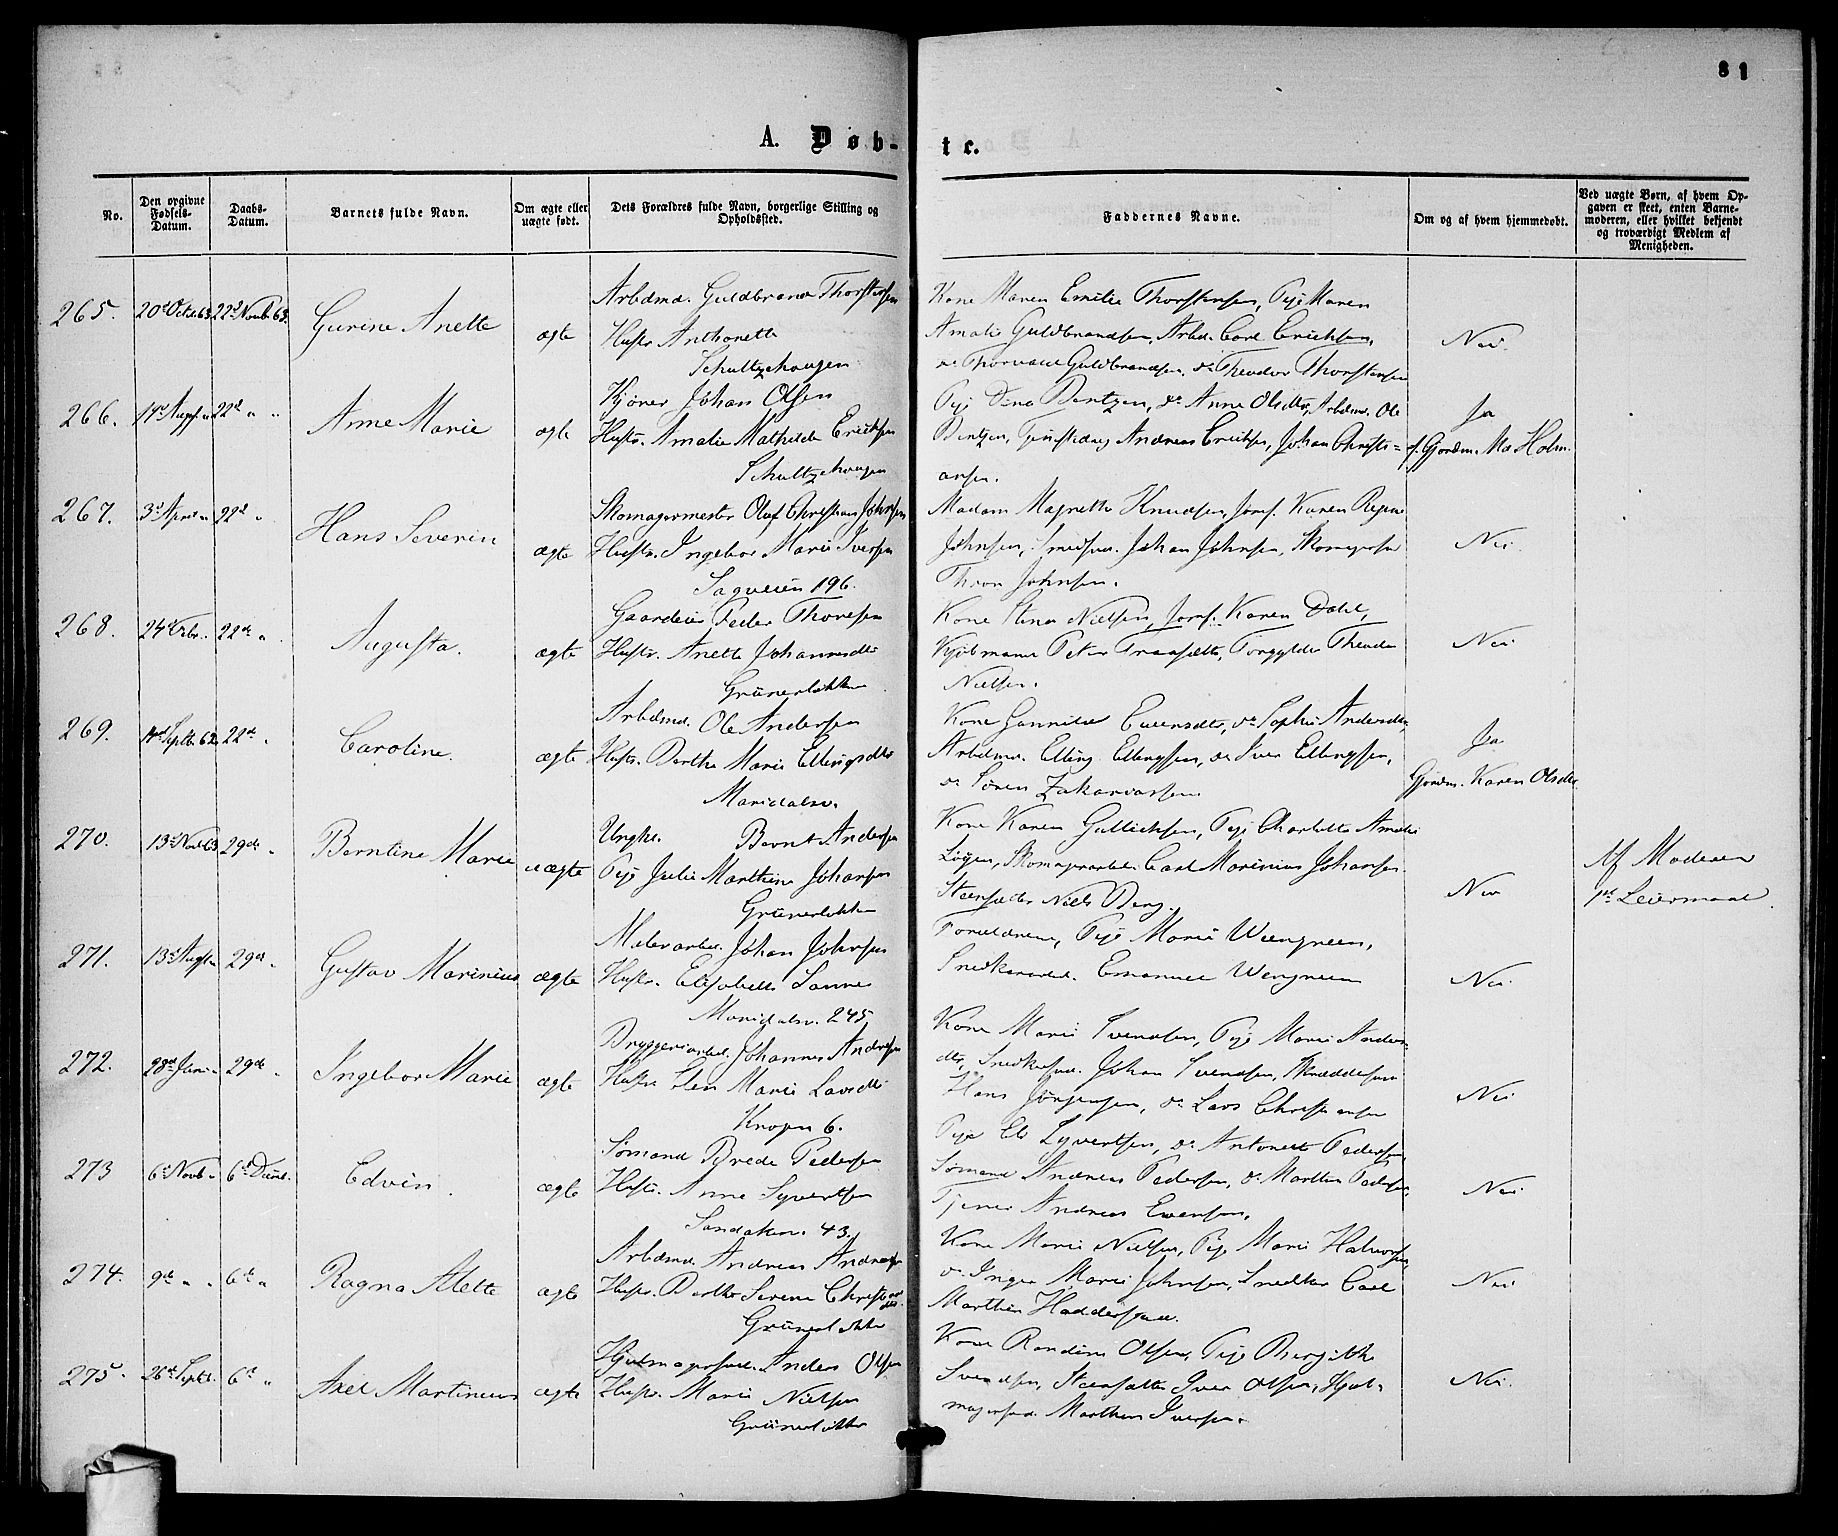 81
A. Døb-
te.
No.
Den opgivne Fødsels-Datum.
Daabs-Datum.
Barnets fulde Navn.
Om ægte eller uægte født.
Dets Forældres fulde Navn, borgerlige Stilling og Opholdssted.
Faddernes Navne.
Om og af hvem hjemmedøbt.
Ved uægte Børn, af hvem Opgaven er skeet, enten Barnemoderen, eller hvilket bekjendt og troværdigt Medlem af Menigheden.
265. 20de Octbr 63 22de Novb 63. Gurine Anette ægte
Arbdmd. Guldbrand Thorstensen
Hustr. Anthonette
Schultzehaugen
Kone Maren Emilie Thorstensen, Pige Maren
Amalie Guldbrandsen, Arbd. Carl Ericksen,
do Thorvald Guldbrandsen, do Theodor Thorstensen
Nei.
266. 22d " " Anne Marie ægte
Johan Olsen
Hustr. Amalie Mathilde Ericksen
Schultzehaugen
Pige Dina Bentzen, do Anne Olsdtr, Arbdmd. Ole
Bentzen, Andreas Ericksen, Johan Christi=
ansen.
Ja
f. Gjordm. Holm.
267. 3d April " 22d " Hans Severin ægte
Skomagermester Oluf Christian Johnsen
Hustr. Ingebor Marie Iversen
Sagveien 196.
Madam Magrethe Knudsen, Jomf. Karen
Johnsen, Smedsvd. Johan Johnsen, Skomagersvd
Thron Johnsen.
Nei.
268. 22de " Augusta. ægte
Peder Thoresen
Hustr. Anette Johannesdtr
Grünerløkken
Kone Stina Nielsen, Jomf. Karen Dahl,
Kjøbmand Peter Theodor
Nielsen.
Nei
269. Septbr. 63 22de " Caroline. ægte
Arbdmd. Ole Andersen
Hustr. Berthe Marie Ellingsdtr
Maridalsv.
Kone Gunnild Evensdtr, do Sophie Andersdtr,
Arbdmd. Elling Ellingsen, do Iver Ellingsen,
do Søren Zakariassen
Ja
Gjordm. Karen Olsdtr
270. 13de Novb 63 29de " Berntine Marie uægte
Ungkl. Bernt Andersen
Pige Julie Marthine Johansen
Grünerløkken
Kone Karen Gullichsen, Pige Charlotte Amalie
Carl Marinius Johansen
Niels Berg.
Nei
Af Moderen
1ste Leiermaal.
271. 13de Augst " 29de " Gustav Marinius ægte
Malerarbd. Johan Johnsen
Hustr. Elisabeth Sannes
Maridalsv. 245.
Forældrene, Pige Marie Wengreen,
Snedkerarbd. Emanuel Wengreen
Nei.
272. 28de Juni " 29de " Ingebor Marie ægte
Bryggeriarbd. Johannes Andersen
Hustr. Marie Larsdtr
Krogen 6.
Kone Marie Svendsen, Pige Marie Anders-
dtr, Snedkersvd. Johan Svendsen, Skræddersvd
Hans Jørgensen, do Lars Christiansen
Nei
273 6te Novb " 6te Decmb. Edvin. ægte
Sømand Brede Pedersen
Hustr. Anne Syvertsen
Sandakerv. 43.
Pige Syvertsen, do Antonette Pedersen,
Sømand Andreas Pedersen, do Marthin Pedersen,
Tjener Andreas Evensen,
Nei
274. 9de " " 6te " Ragna Alette ægte
Arbdmd. Andreas Andreassen
Hustr. Berthe Serene
Grünerløkken
Kone Marie Nielsen, Pige Marie Halvorsen,
do Inger Marie Johnsen, Snedker Carl
Marthin
Nei
275. 26de Septb. 6te " Axel Martinius ægte
Hjulmagersvd. Anders Olsen
Hustr. Marie Nielsen
Grünerløkken
Kone Randine Olsen, Pige Bergithe
Svendsen, Iver Olsen, Hjul-
magersvd. Marthin Iversen.
Nei.